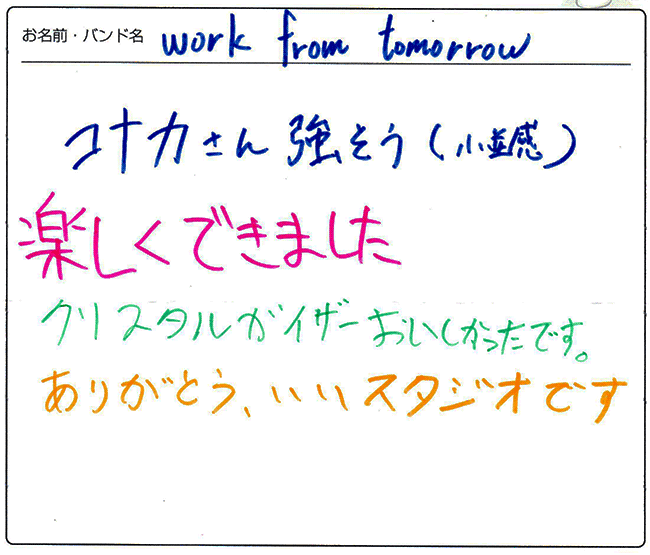 お名前・バンド名 work from tomorrow
コナカさん 強そう(小並感)
楽しくできました
クリスタルガイザーおいしかったです。
ありがとう、いいスタジオです